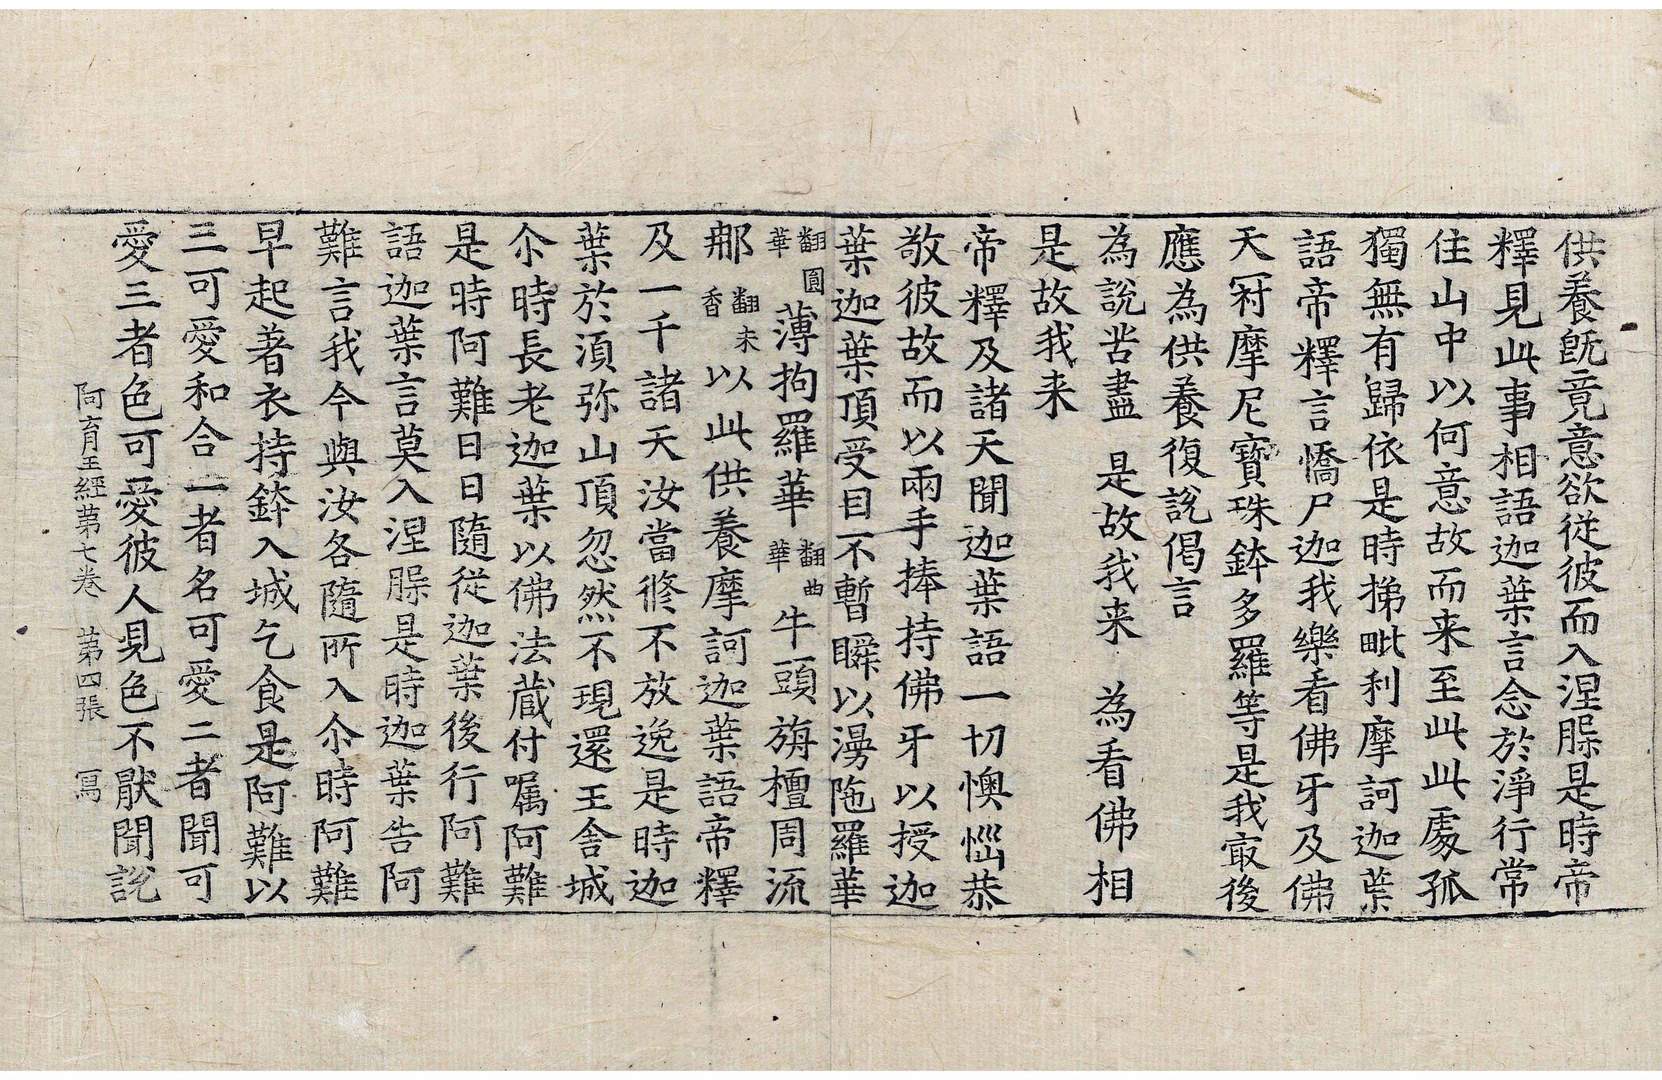 供養旣竟意欲從彼而入涅槃是時帝
釋見此事相語迦葉言念於淨行常
住山中以何意故而来至此此處孤
獨無有歸依是時梯毗利摩訶迦葉
語帝釋言憍尸迦我樂看佛牙及佛
天冠摩尼寶珠鉢多羅等是我㝡後
應為供養復說偈言
為說苦盡　是故我来　為看佛相
是故我来
帝釋及諸天聞迦葉語一切懊惱恭
敬彼故而以兩手捧持佛牙以授迦
葉迦葉頂受目不暫瞬以漫陁羅華
翻圓華薄拘羅華翻曲華牛頭旃檀周流
那翻末香以此供養摩訶迦葉語帝釋
及一千諸天汝當脩不放逸是時迦
葉於須弥山頂忽然不現還王舍城
尒時長老迦葉以佛法蔵付嘱阿難
是時阿難日日隨從迦葉後行阿難
語迦葉言莫入涅槃是時迦葉告阿
難言我今與汝各隨所入尒時阿難
早起著衣持鉢入城乞食是阿難以
三可愛和合一者名可愛二者聞可
愛三者色可愛彼人見色不猒聞說
阿育王經第七卷　第四張　冩